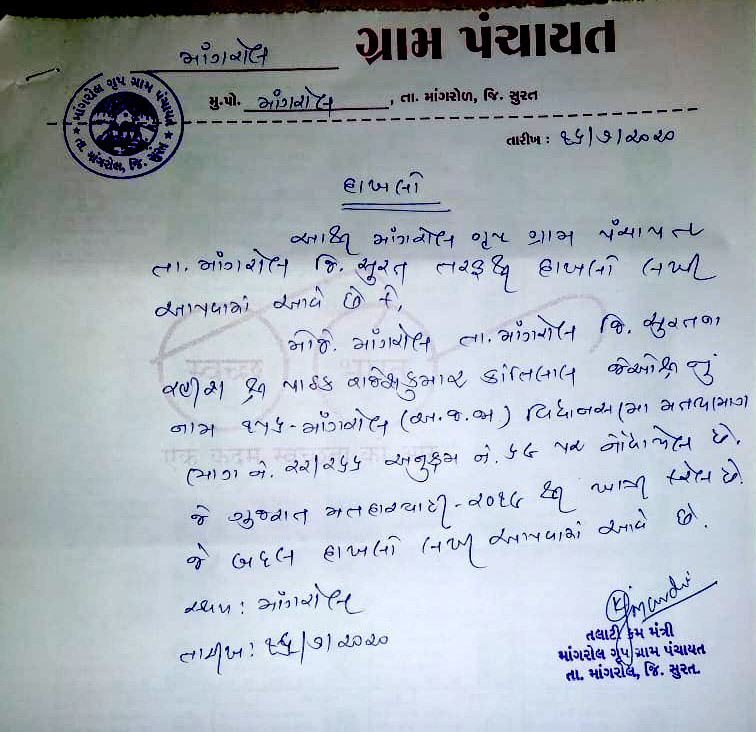 માંગરોલ ગ્રામ પંચાયત
મુ.પો. માંગરોલ , તા. માંગરોળ, જિ. સુરત
માંગરોલ ગૃપ ગ્રામ પંચાયત
તા. માંગરોલ, જિ. સુરત
તારીખ : ૧૬/૭/૨૦૨૦
દાખલો
આથી માંગરોલ ગૃપ ગ્રામ પંચાયત
તા. માંગરોલ જિ. સુરત તરફથી દાખલો લખી
આપવામાં આવે છે કે,
મોજે. માંગરોલ તા. માંગરોલ જિ. સુરતના
રહીશ શ્રી પાઠક રાજેશકુમાર કાંતિલાલ જેઓશ્રી નું
નામ ૧૫૬-માંગરોલ (અ.જ.જા) વિધાનસભા મતદાર
ભાગ નં. ૨૨/૨૬૬ અનુક્રમ નં. ૬૭ પર નોંધાયેલ છે.
જે ગુજરાત મતદારયાદી-૨૦૧૭ થી ખાત્રી કરેલ છે.
જે બદલ દાખલો લખી આપવામાં આવે છે.
સ્થળ: માંગરોલ
તારીખ: ૧૬/૭/૨૦૨૦
સ્વચ્છ ભારત
एक कदम स्वच्छता की ओर
તલાટી કમ મંત્રી
માંગરોલ ગૃપ ગ્રામ પંચાયત
તા. માંગરોલ, જિ. સુરત.